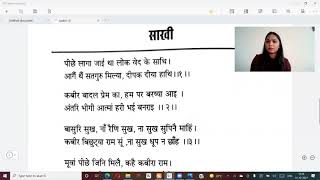 साखी
पीछे लागा जाई था लोक वेद के साथि।
आगैं थैं सतगुरु मिल्या, दीपक दीया हाथि॥१॥
कबीर बादल प्रेम का, हम पर बरष्या आइ ।
अंतरि भीगी आत्मां हरी भई बनराइ ॥२॥
बासुरि सुख, नाँ रैणि सुख, ना सुख सुपिनै माहिं।
कबीर बिछुट्या राम सूं, ना सुख धूप न छाँह ॥३॥
मूवां पीछे जिनि मिलै, कहै कबीरा राम।